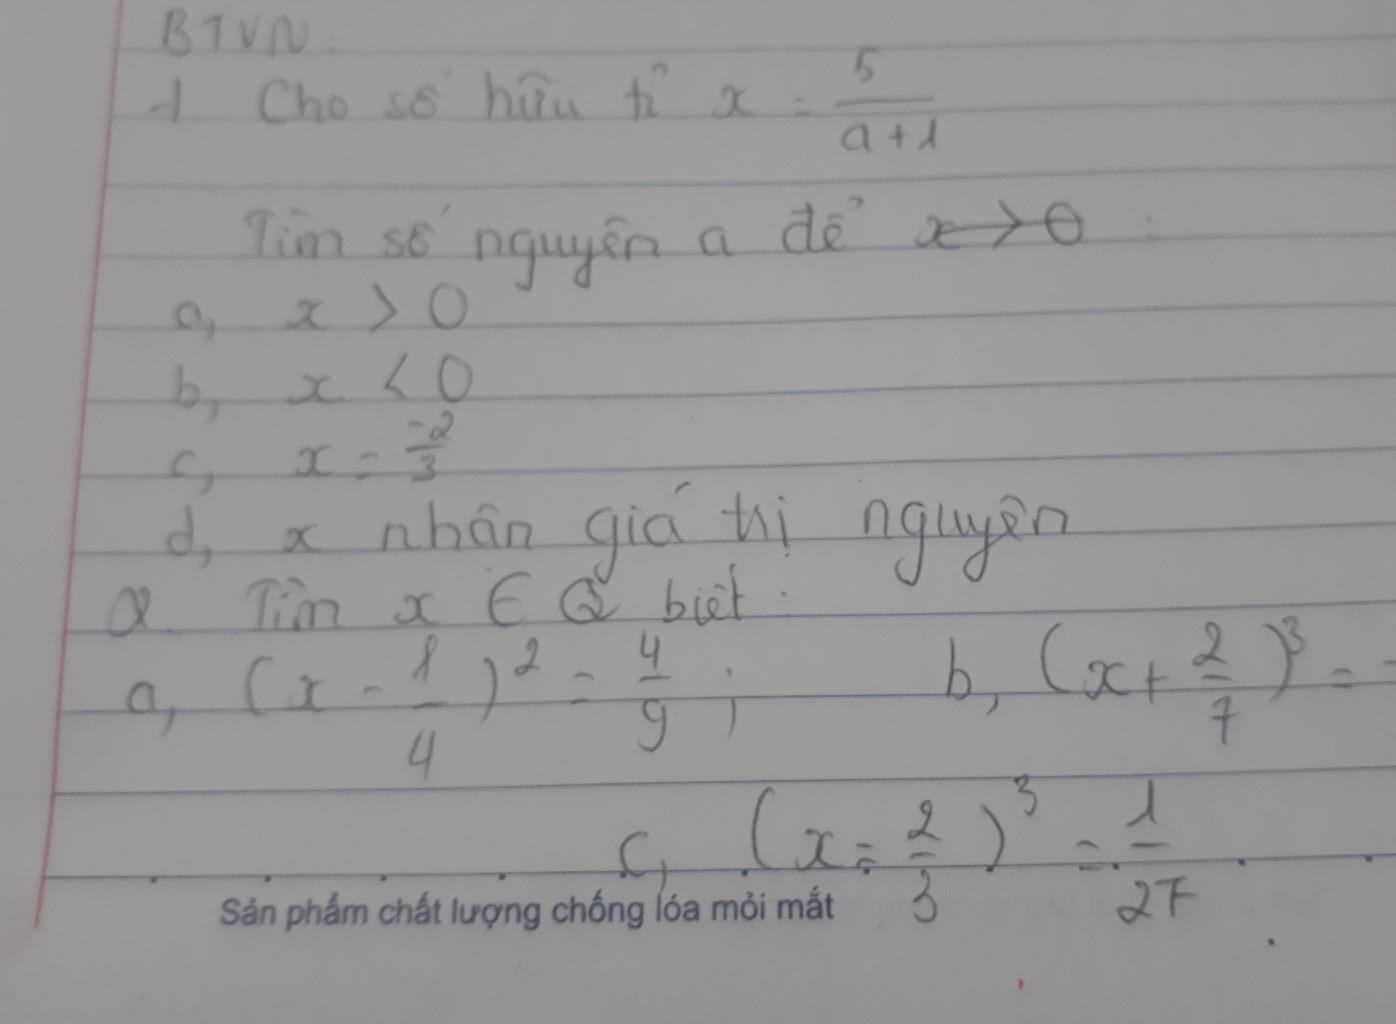 BTVN
1 Cho số hữu tỉ x = 5/(a+1)
Tìm số nguyên a để x > 0 :
a, x > 0
b, x < 0
c, x = -2/3
d, x nhân giá trị nguyên
2. Tìm x ∈ Q biết :
a, (x - 1/4)² = 4/9 ; b, (x + 2/7)³ = -
c, (x - 2/3)³ = 1/27
Sản phẩm chất lượng chống lóa mỏi mắt